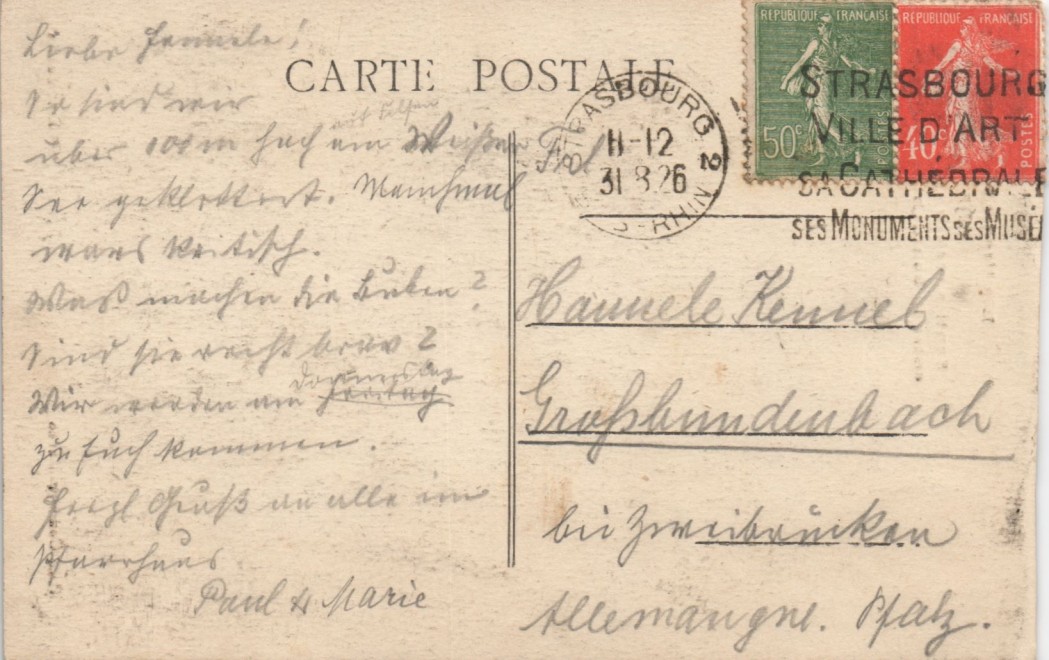 CARTE POSTALE
Liebe Hannele!
Da sind wir
über 100 m hoch am Weißen
mit Felsen
See geklettert. Manchmal
wars kritisch.
Was machen die Buben?
Sind sie recht brav?
Donnerstag
Wir werden am Freitag
zu Euch kommen.
Herzl Gruß an alle im
Pfarrhaus
Paul & Marie
REPUBLIQUE FRANÇAISE
50c
POSTES
REPUBLIQUE FRANÇAISE
40c
POSTES
STRASBOURG 2
11-12
31 8 26
RHIN
STRASBOURG
VILLE D'ART
SA CATHÉDRALE
SES MONUMENTS SES MUSÉ
Hannele Kennel
Großbundenbach
bei Zweibrücken
Allemangne. Pfalz.